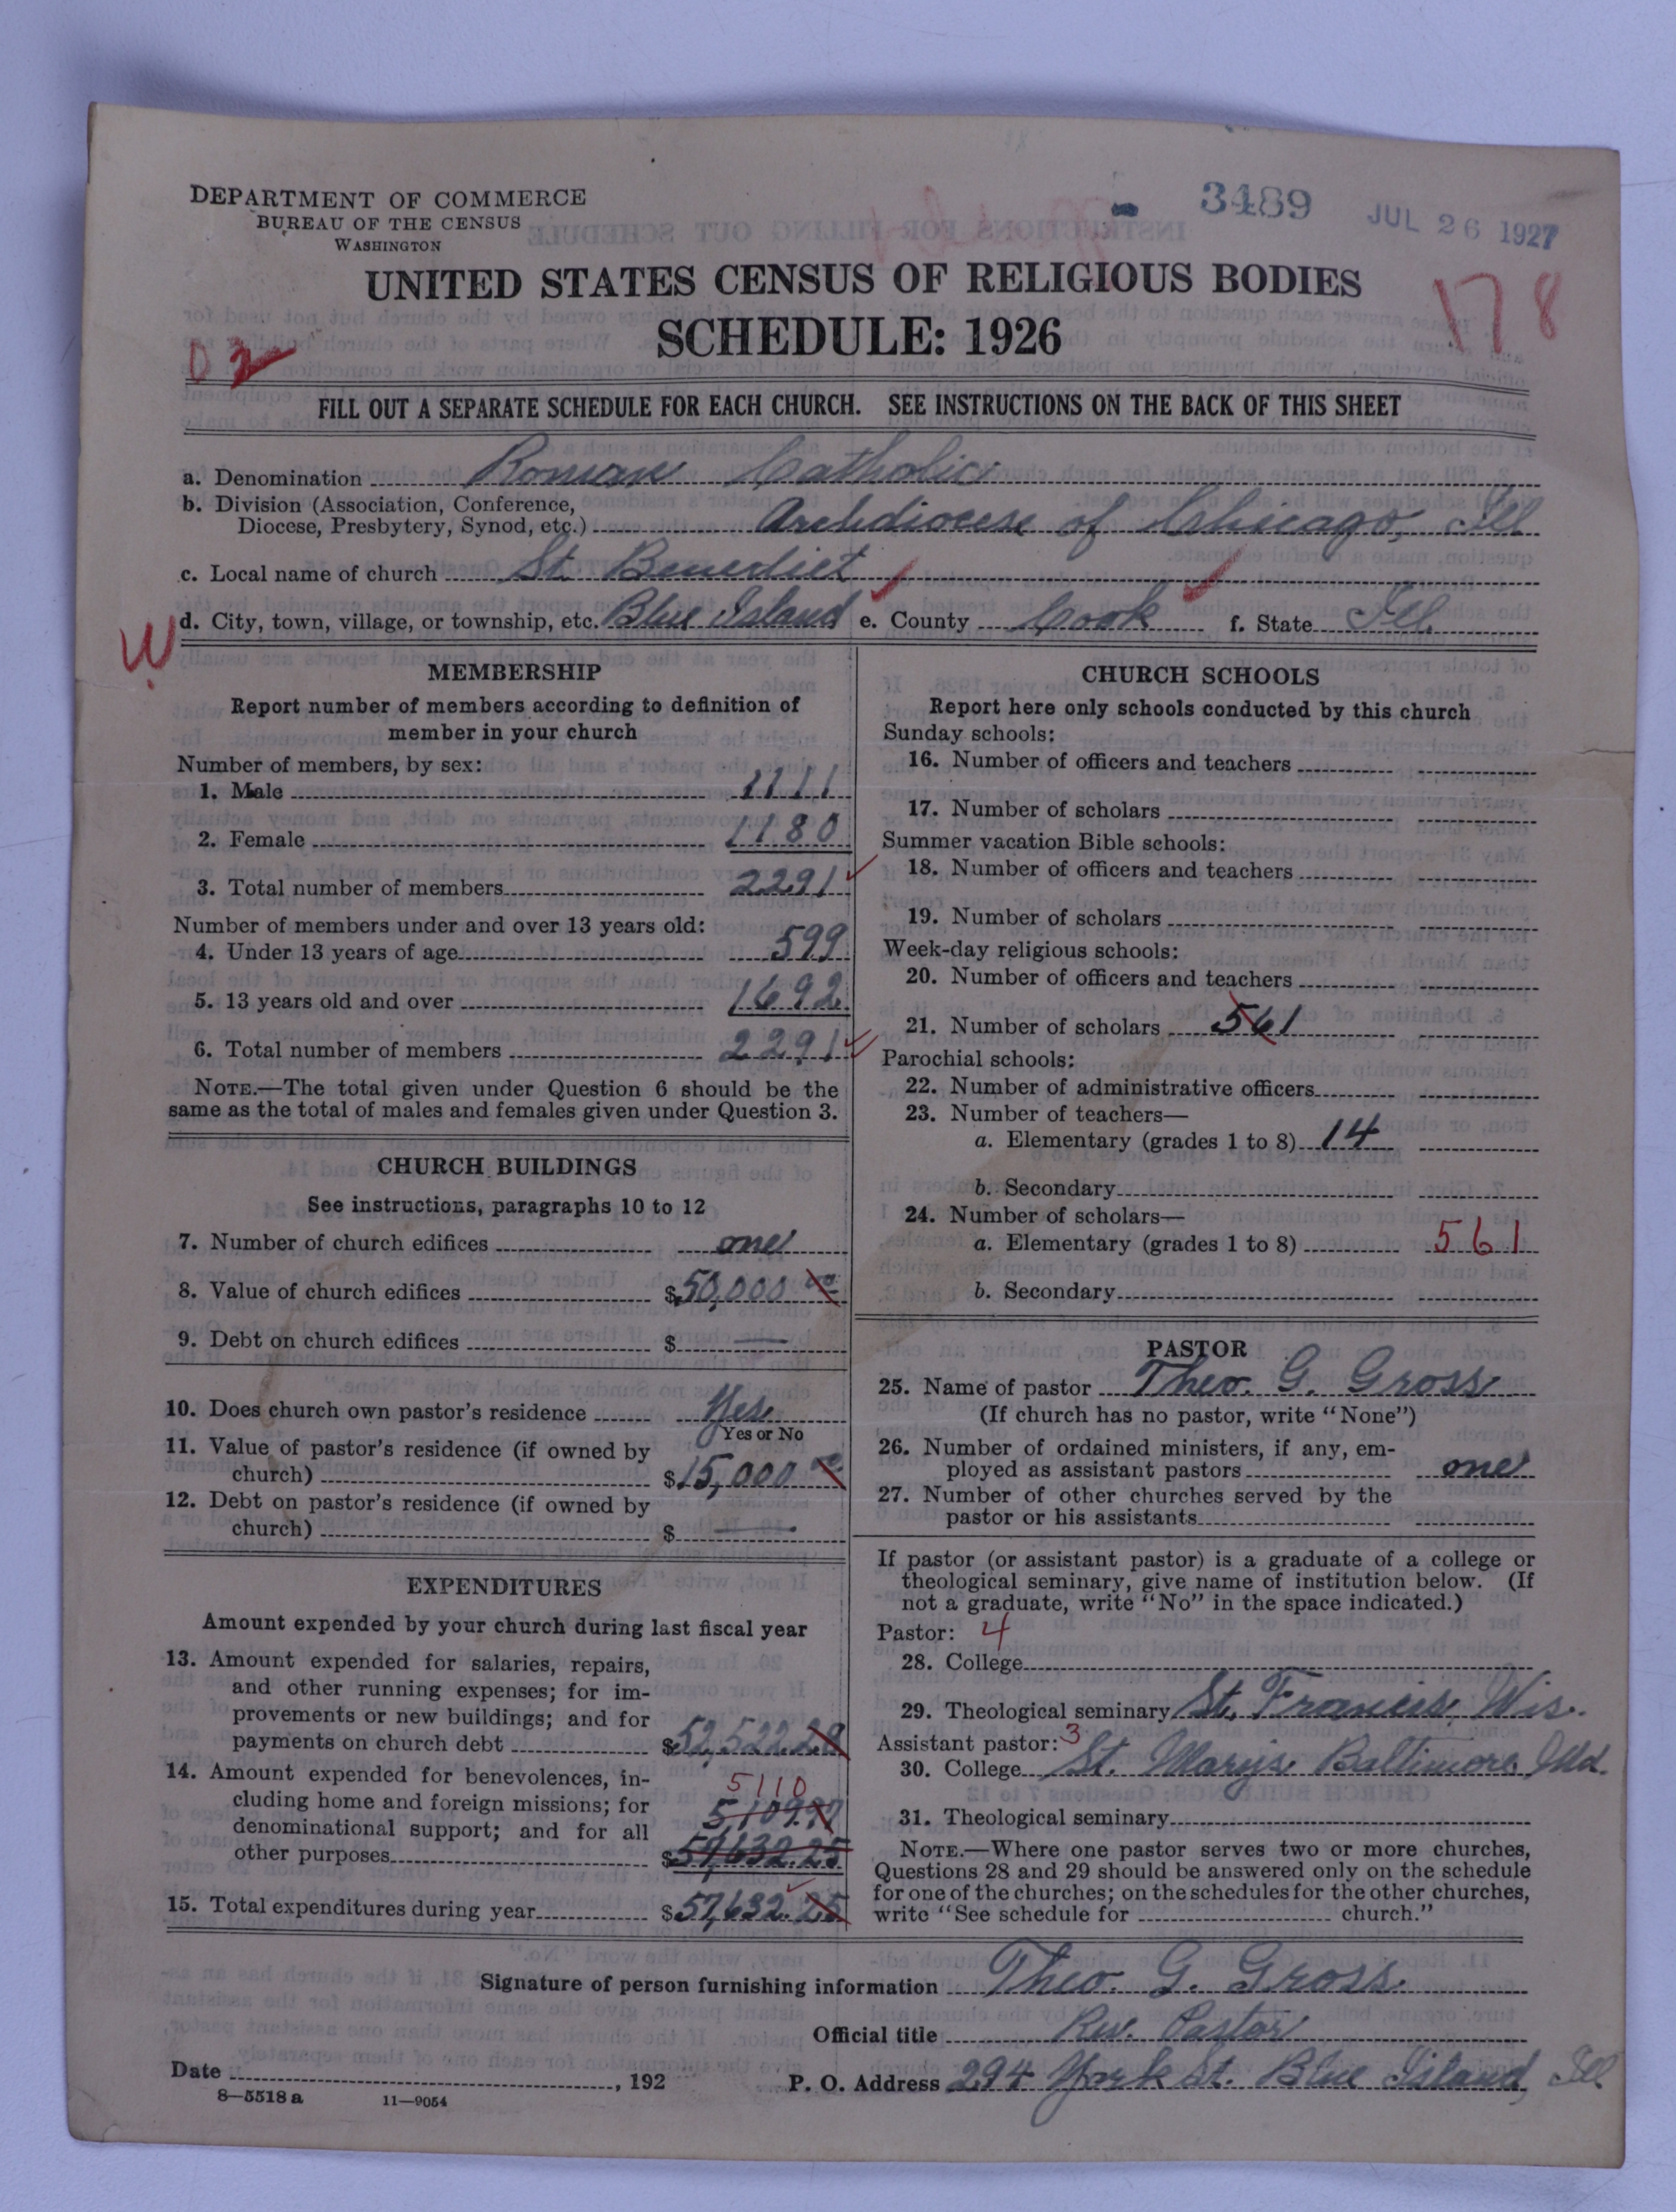 DEPARTMENT OF COMMERCE
BUREAU OF THE CENSUS
WASHINGTON
3489 JUL 26 1927
UNITED STATES CENSUS OF RELIGIOUS BODIES
178
SCHEDULE: 1926
02
FILL OUT A SEPARATE SCHEDULE FOR EACH CHURCH. SEE INSTRUCTIONS ON THE BACK OF THIS SHEET
a. Denomination Roman Catholic
b. Division (Association, Conference,
Diocese, Presbytery, Synod, etc.) Archdiocese of Chicago, Ill
c. Local name of church St. Benedict
W
d. City, town, village, or township, etc. Blue Island e. County Cook f. State Ill.
MEMBERSHIP
Report number of members according to definition of
member in your church
Number of members, by sex:
1. Male 1111
2. Female 1180
3. Total number of members 2291
Number of members under and over 13 years old:
4. Under 13 years of age 599
5. 13 years old and over 1692
6. Total number of members 2291
NOTE.—The total given under Question 6 should be the
same as the total of males and females given under Question 3.
CHURCH BUILDINGS
See instructions, paragraphs 10 to 12
7. Number of church edifices one
8. Value of church edifices $50,000 00
9. Debt on church edifices $ —
10. Does church own pastor's residence Yes
Yes or No
11. Value of pastor's residence (if owned by
church) $15,000 00
12. Debt on pastor's residence (if owned by
church) $ —
EXPENDITURES
Amount expended by your church during last fiscal year
13. Amount expended for salaries, repairs,
and other running expenses; for im-
provements or new buildings; and for
payments on church debt $52,522.28
14. Amount expended for benevolences, in-
5110
cluding home and foreign missions; for
5,109.97
denominational support; and for all
other purposes $57,632.25
15. Total expenditures during year $57,632.25
CHURCH SCHOOLS
Report here only schools conducted by this church
Sunday schools:
16. Number of officers and teachers
17. Number of scholars
Summer vacation Bible schools:
18. Number of officers and teachers
19. Number of scholars
Week-day religious schools:
20. Number of officers and teachers
21. Number of scholars 561
Parochial schools:
22. Number of administrative officers
23. Number of teachers—
a. Elementary (grades 1 to 8) 14
b. Secondary
24. Number of scholars—
a. Elementary (grades 1 to 8) 561
b. Secondary
PASTOR
25. Name of pastor Theo. G. Gross
(If church has no pastor, write "None")
26. Number of ordained ministers, if any, em-
ployed as assistant pastors one
27. Number of other churches served by the
pastor or his assistants
If pastor (or assistant pastor) is a graduate of a college or
theological seminary, give name of institution below. (If
not a graduate, write "No" in the space indicated.)
Pastor: 4
28. College
29. Theological seminary St. Francis, Wis.
Assistant pastor: 3
30. College St. Marys Baltimore, Md.
31. Theological seminary
NOTE.—Where one pastor serves two or more churches,
Questions 28 and 29 should be answered only on the schedule
for one of the churches; on the schedules for the other churches,
write "See schedule for church."
Signature of person furnishing information Theo. G. Gross
Official title Rev. Pastor
Date , 192 P. O. Address 294 York St. Blue Island, Ill
8—5518a 11—9054